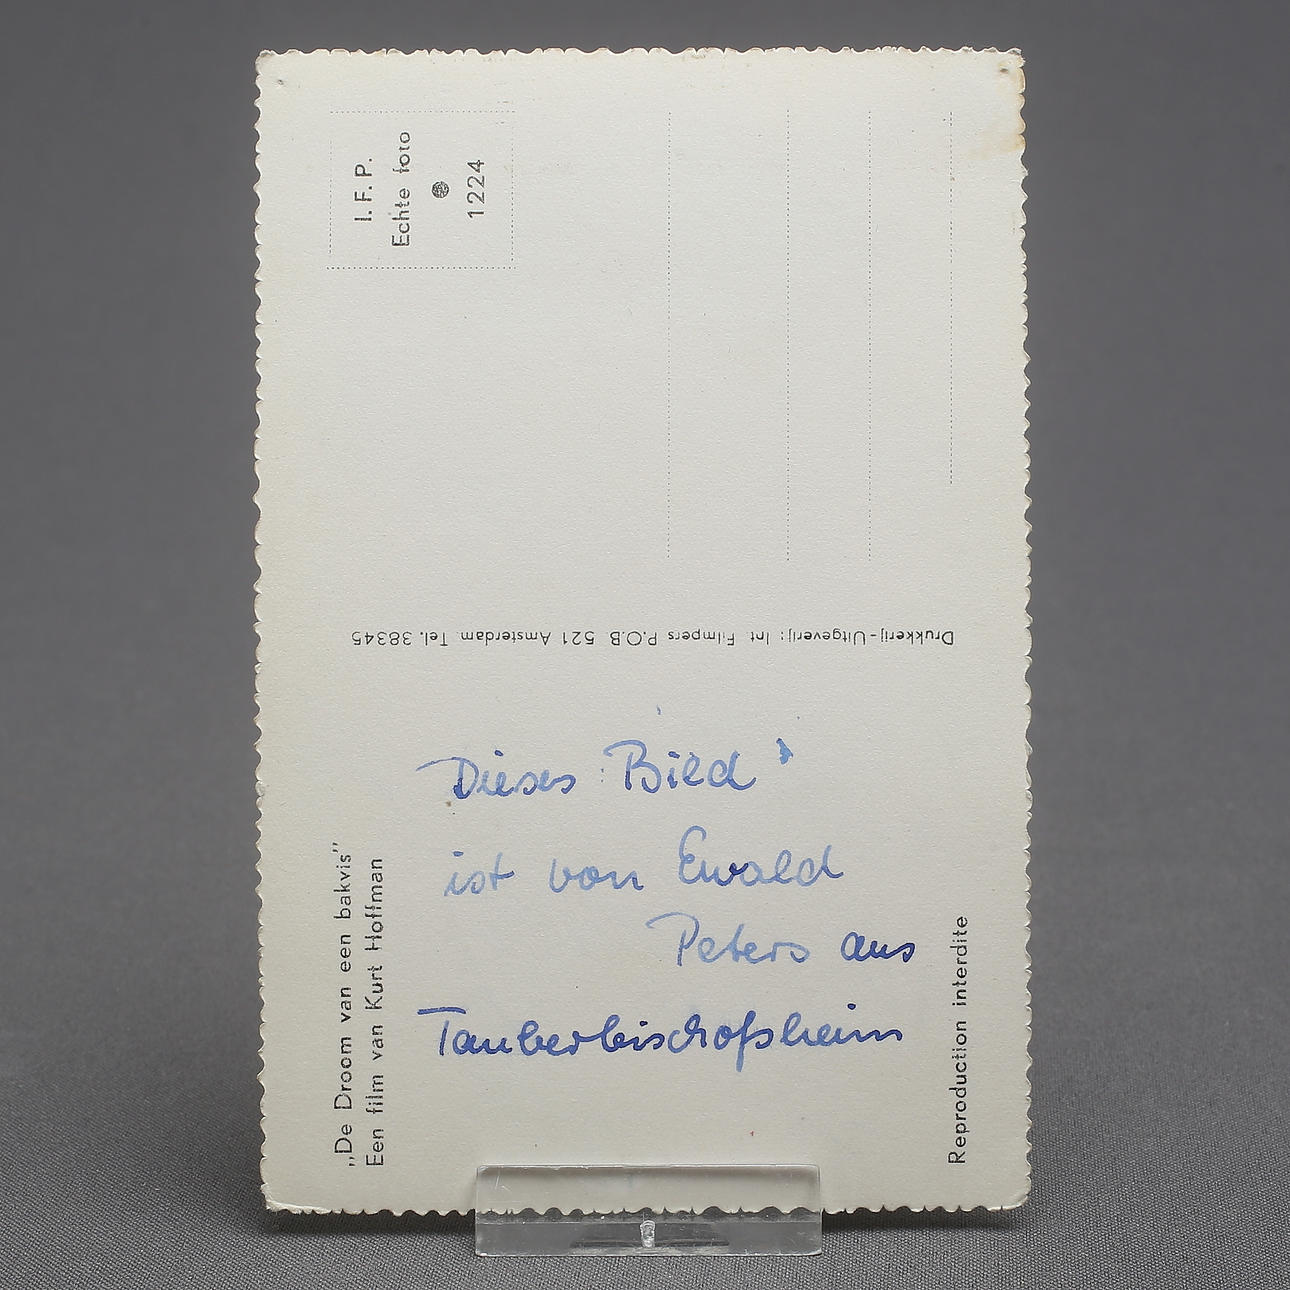 I. F. P.
Echte foto
1224
Drukkerij-Uitgeverij: Int Filmpers P.O.B. 521 Amsterdam Tel. 38345
Dieses Bild
ist von Ewald
Peters aus
Tauberbischofsheim
„De Droom van een bakvis”
Een film van Kurt Hoffman
Reproduction interdite